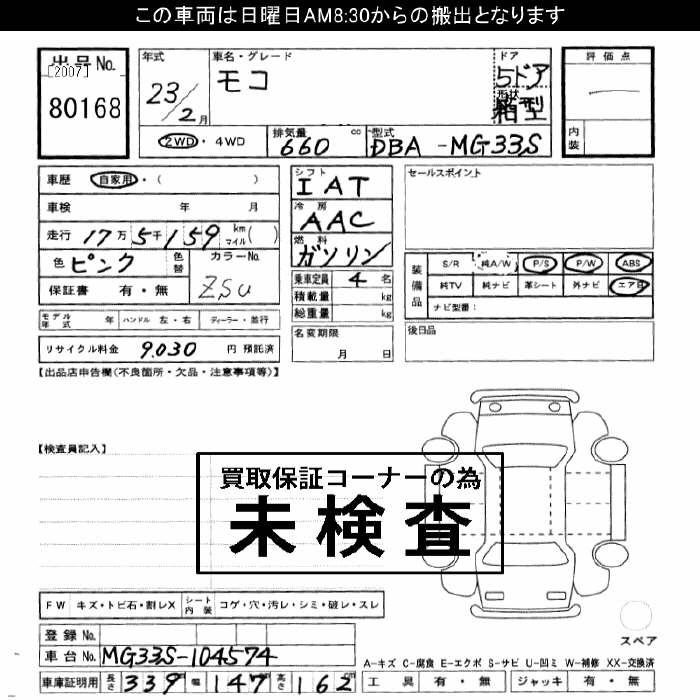 この車両は日曜日AM8:30からの搬出となります
出品No.
[2007]
80168
年式
23/2月
車名・グレード
モコ
ドア
5ドア
形状
箱型
評価点
内装
2WD・4WD
排気量
660 cc
型式
DBA-MG33S
車歴 自家用・( )
車検 年 月
走行 17万5千159 km マイル( )
色 ピンク 色替
カラーNo.
ZSU
保証書 有・無
モデル年式 年 ハンドル 左・右 ディーラー・並行
リサイクル料金 9,030 円 預託済
シフト
IAT
冷房
AAC
燃料
ガソリン
乗車定員 4 名
積載量 kg
総重量 kg
名変期限
月 日
セールスポイント
装備品
S/R 純A/W P/S P/W ABS
純TV 純ナビ 革シート 外ナビ エアB
ナビ型番:
後日品
【出品店申告欄(不良箇所・欠品・注意事項等)】
【検査員記入】
買取保証コーナーの為
未検査
FW キズ・トビ石・割レX シート内装 コゲ・穴・汚レ・シミ・破レ・スレ
スペア
登録No.
車台No. MG33S-104574
車庫証明用 長さ 339 幅 147 高さ 162
A-キズ C-腐食 E-エクボ S-サビ U-凹ミ W-補修 XX-交換済
工具 有・無 ジャッキ 有・無